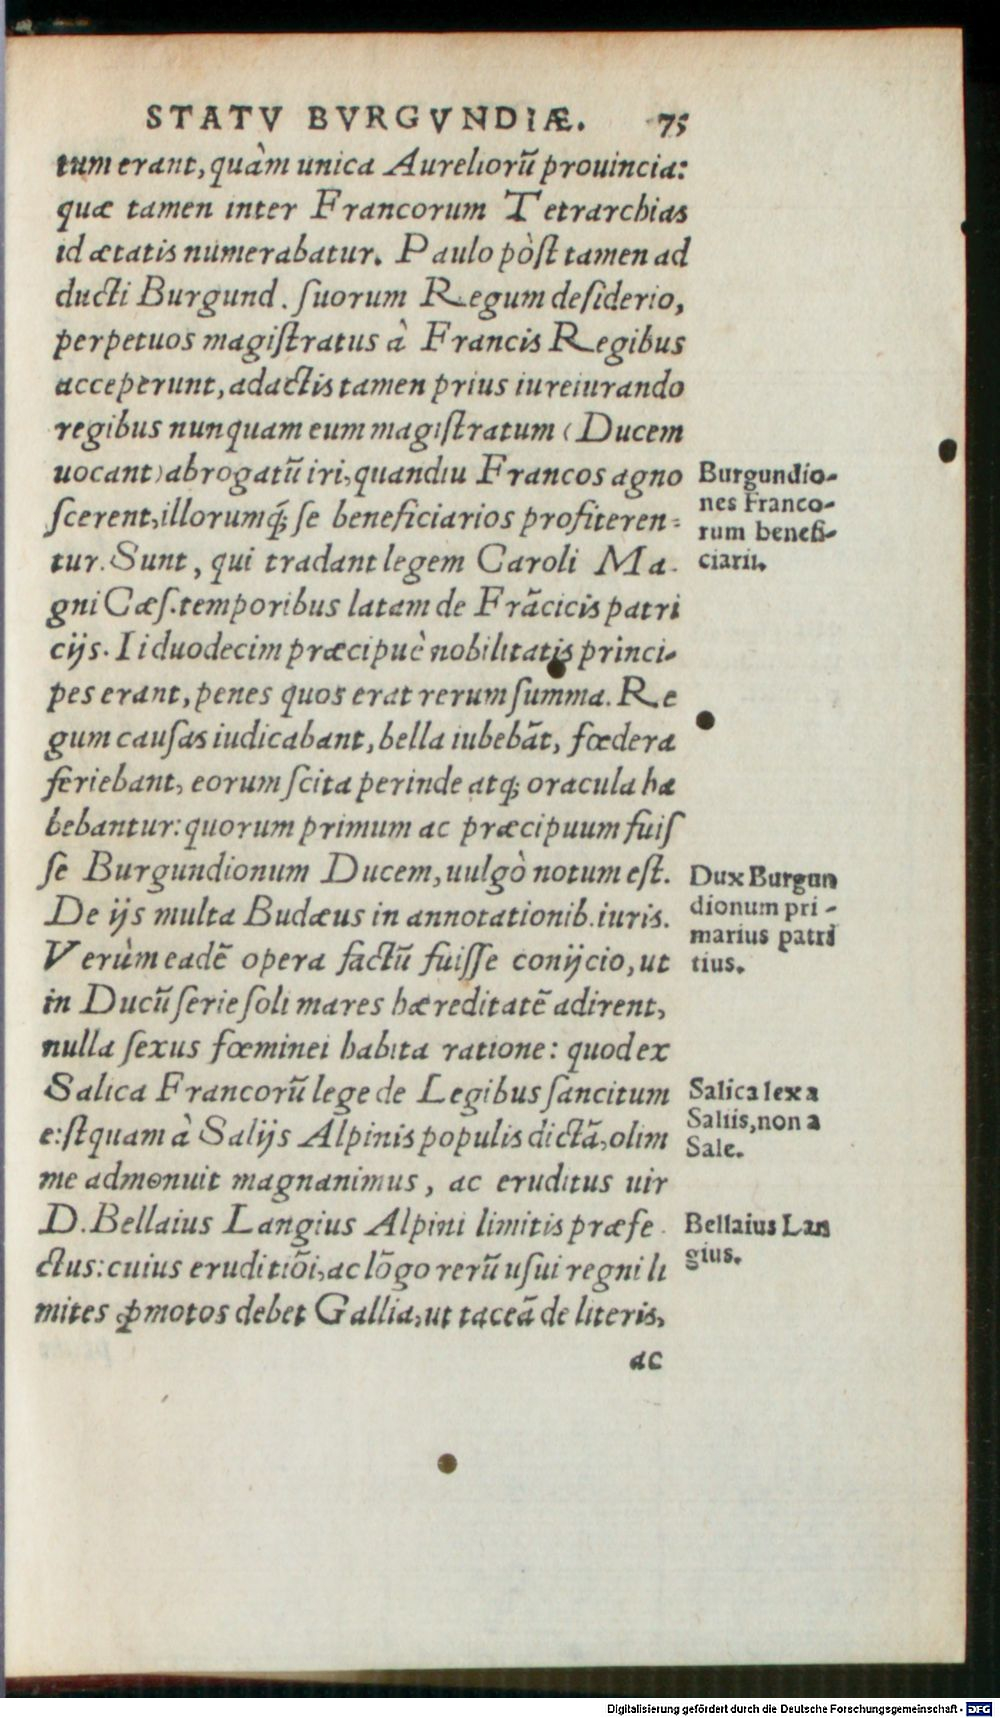 STATV BVRGVNDIÆ. 75
tum erant, quàm unica Aureliorũ prouincia:
quæ tamen inter Francorum Tetrarchias
id ætatis numerabatur. Paulo pòſt tamen ad
ducti Burgund. ſuorum Regum deſiderio,
perpetuos magiſtratus à Francis Regibus
acceperunt, adactis tamen prius iureiurando
regibus nunquam eum magiſtratum (Ducem
uocant) abrogatũ iri, quandiu Francos agno
ſcerent, illorumq́; ſe beneficiarios profiteren=
tur. Sunt, qui tradant legem Caroli Ma-
gni Cæſ. temporibus latam de Frãcicis patri
cijs. Ii duodecim præcipuè nobilitatis princi-
pes erant, penes quos erat rerum ſumma. Re
gum cauſas iudicabant, bella iubebãt, fœdera
feriebant, eorum ſcita perinde atq; oracula ha
bebantur: quorum primum ac præcipuum fuiſ
ſe Burgundionum Ducem, uulgò notum eſt.
De ijs multa Budæus in annotationib. iuris.
Verùm eadẽ opera factũ fuiſſe conijcio, ut
in Ducũ ſerie ſoli mares hæreditatẽ adirent,
nulla ſexus fœminei habita ratione: quod ex
Salica Francorũ lege de Legibus ſancitum
e:ſt quam à Salijs Alpinis populis dictã, olim
me admonuit magnanimus, ac eruditus uir
D. Bellaius Langius Alpini limitis præfe-
ctus: cuius eruditiõi, ac lõgo rerũ uſui regni li
mites ꝓmotos debet Gallia, ut taceã de literis,
ac
Burgundio-
nes Franco-
rum benefi-
ciarii.
Dux Burgun
dionum pri-
marius patri
tius.
Salica lex a
Saliis, non a
Sale.
Bellaius Lan
gius.
Digitalisierung gefördert durch die Deutsche Forschungsgemeinschaft - DFG